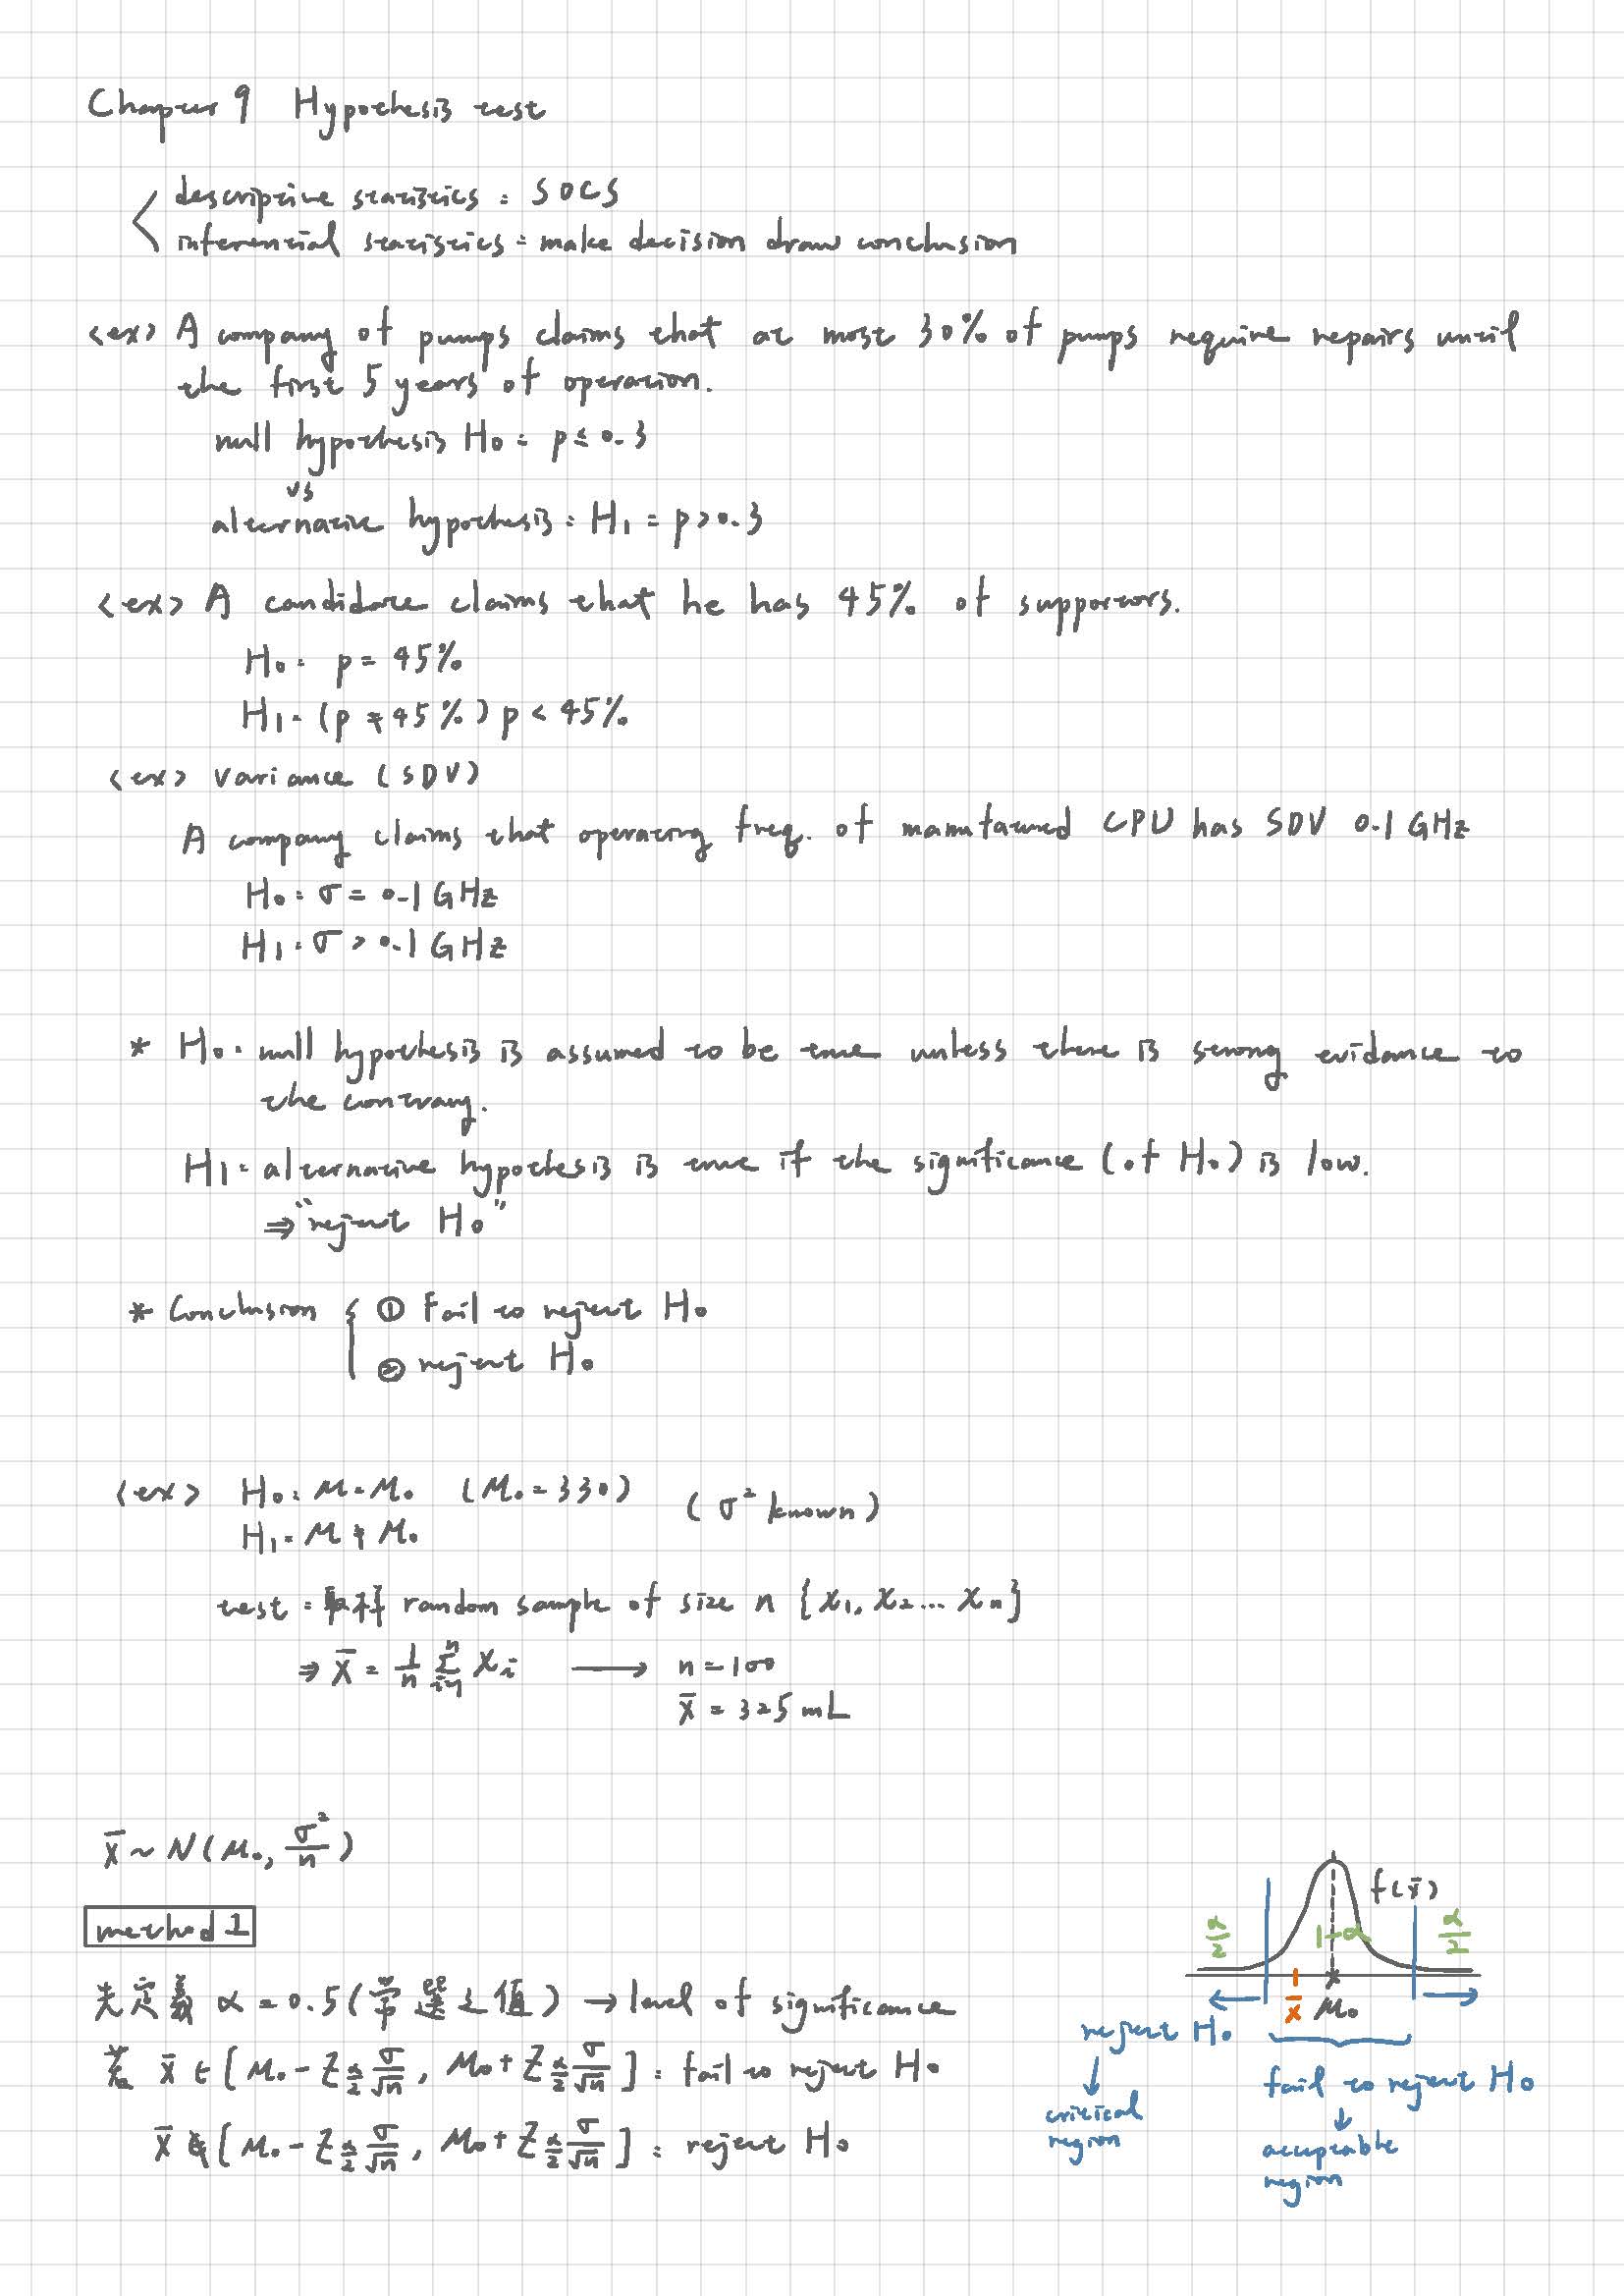 Chapter 9 Hypothesis test
descriptive statistics : SOCS
inferential statistics : make decision draw conclusion
<ex> A company of pumps claims that at most 30% of pumps require repairs until
the first 5 years of operation.
null hypothesis H₀ : p ≤ 0.3
vs
alternative hypothesis : H₁ : p > 0.3
<ex> A candidate claims that he has 45% of supportors.
H₀ : p = 45%
H₁ : (p ≠ 45%) p < 45%
<ex> variance (SDV)
A company claims that operating freq. of manufatured CPU has SDV 0.1 GHz
H₀ : σ = 0.1 GHz
H₁ : σ > 0.1 GHz
* H₀ : null hypothesis is assumed to be true unless there is strong evidance to
the contrary.
H₁ : alternative hypothesis is true if the significance (of H₀) is low.
⇒ "reject H₀"
* Conclusion { ① Fail to reject H₀
② reject H₀
<ex> H₀ : μ = μ₀ (μ₀ = 330) (σ² known)
H₁ : μ ≠ μ₀
test : 取樣 random sample of size n {x₁, x₂ ... xₙ}
⇒ x̄ = 1/n Σᵢ₌₁ⁿ xᵢ ⟶ n = 100
x̄ = 325 mL
x̄ ~ N(μ₀, σ²/n)
method 1
先定義 α = 0.5 (常選之值) → level of significance
若 x̄ ∈ [μ₀ - Z_{α/2} σ/√n, μ₀ + Z_{α/2} σ/√n] : fail to reject H₀
x̄ ∉ [μ₀ - Z_{α/2} σ/√n, μ₀ + Z_{α/2} σ/√n] : reject H₀
f(x̄)
α/2 1-α α/2
x̄ μ₀
reject H₀
fail to reject H₀
critical
region
acceptable
region